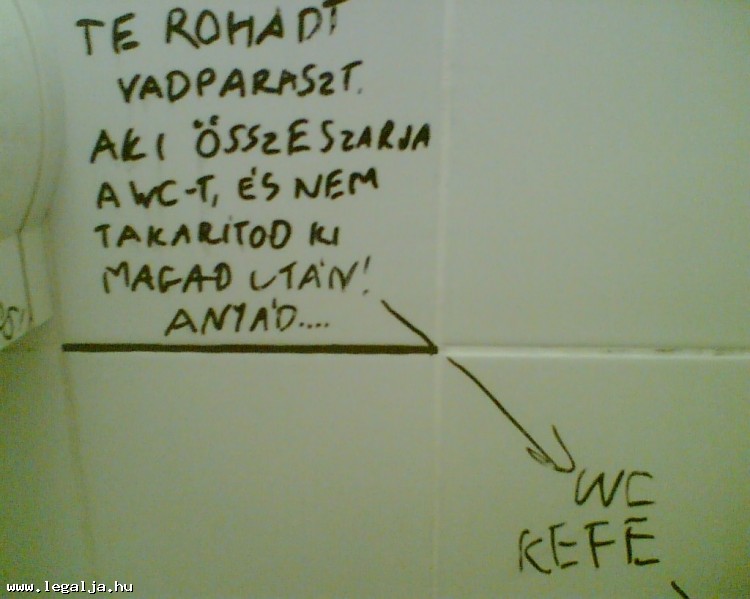 TE ROHADT
VADPARASZT.
AKI ÖSSZESZARJA
A WC-T, ÉS NEM
TAKARÍTOD KI
MAGAD UTÁN!
ANYÁD....
WC
KEFE
www.legalja.hu